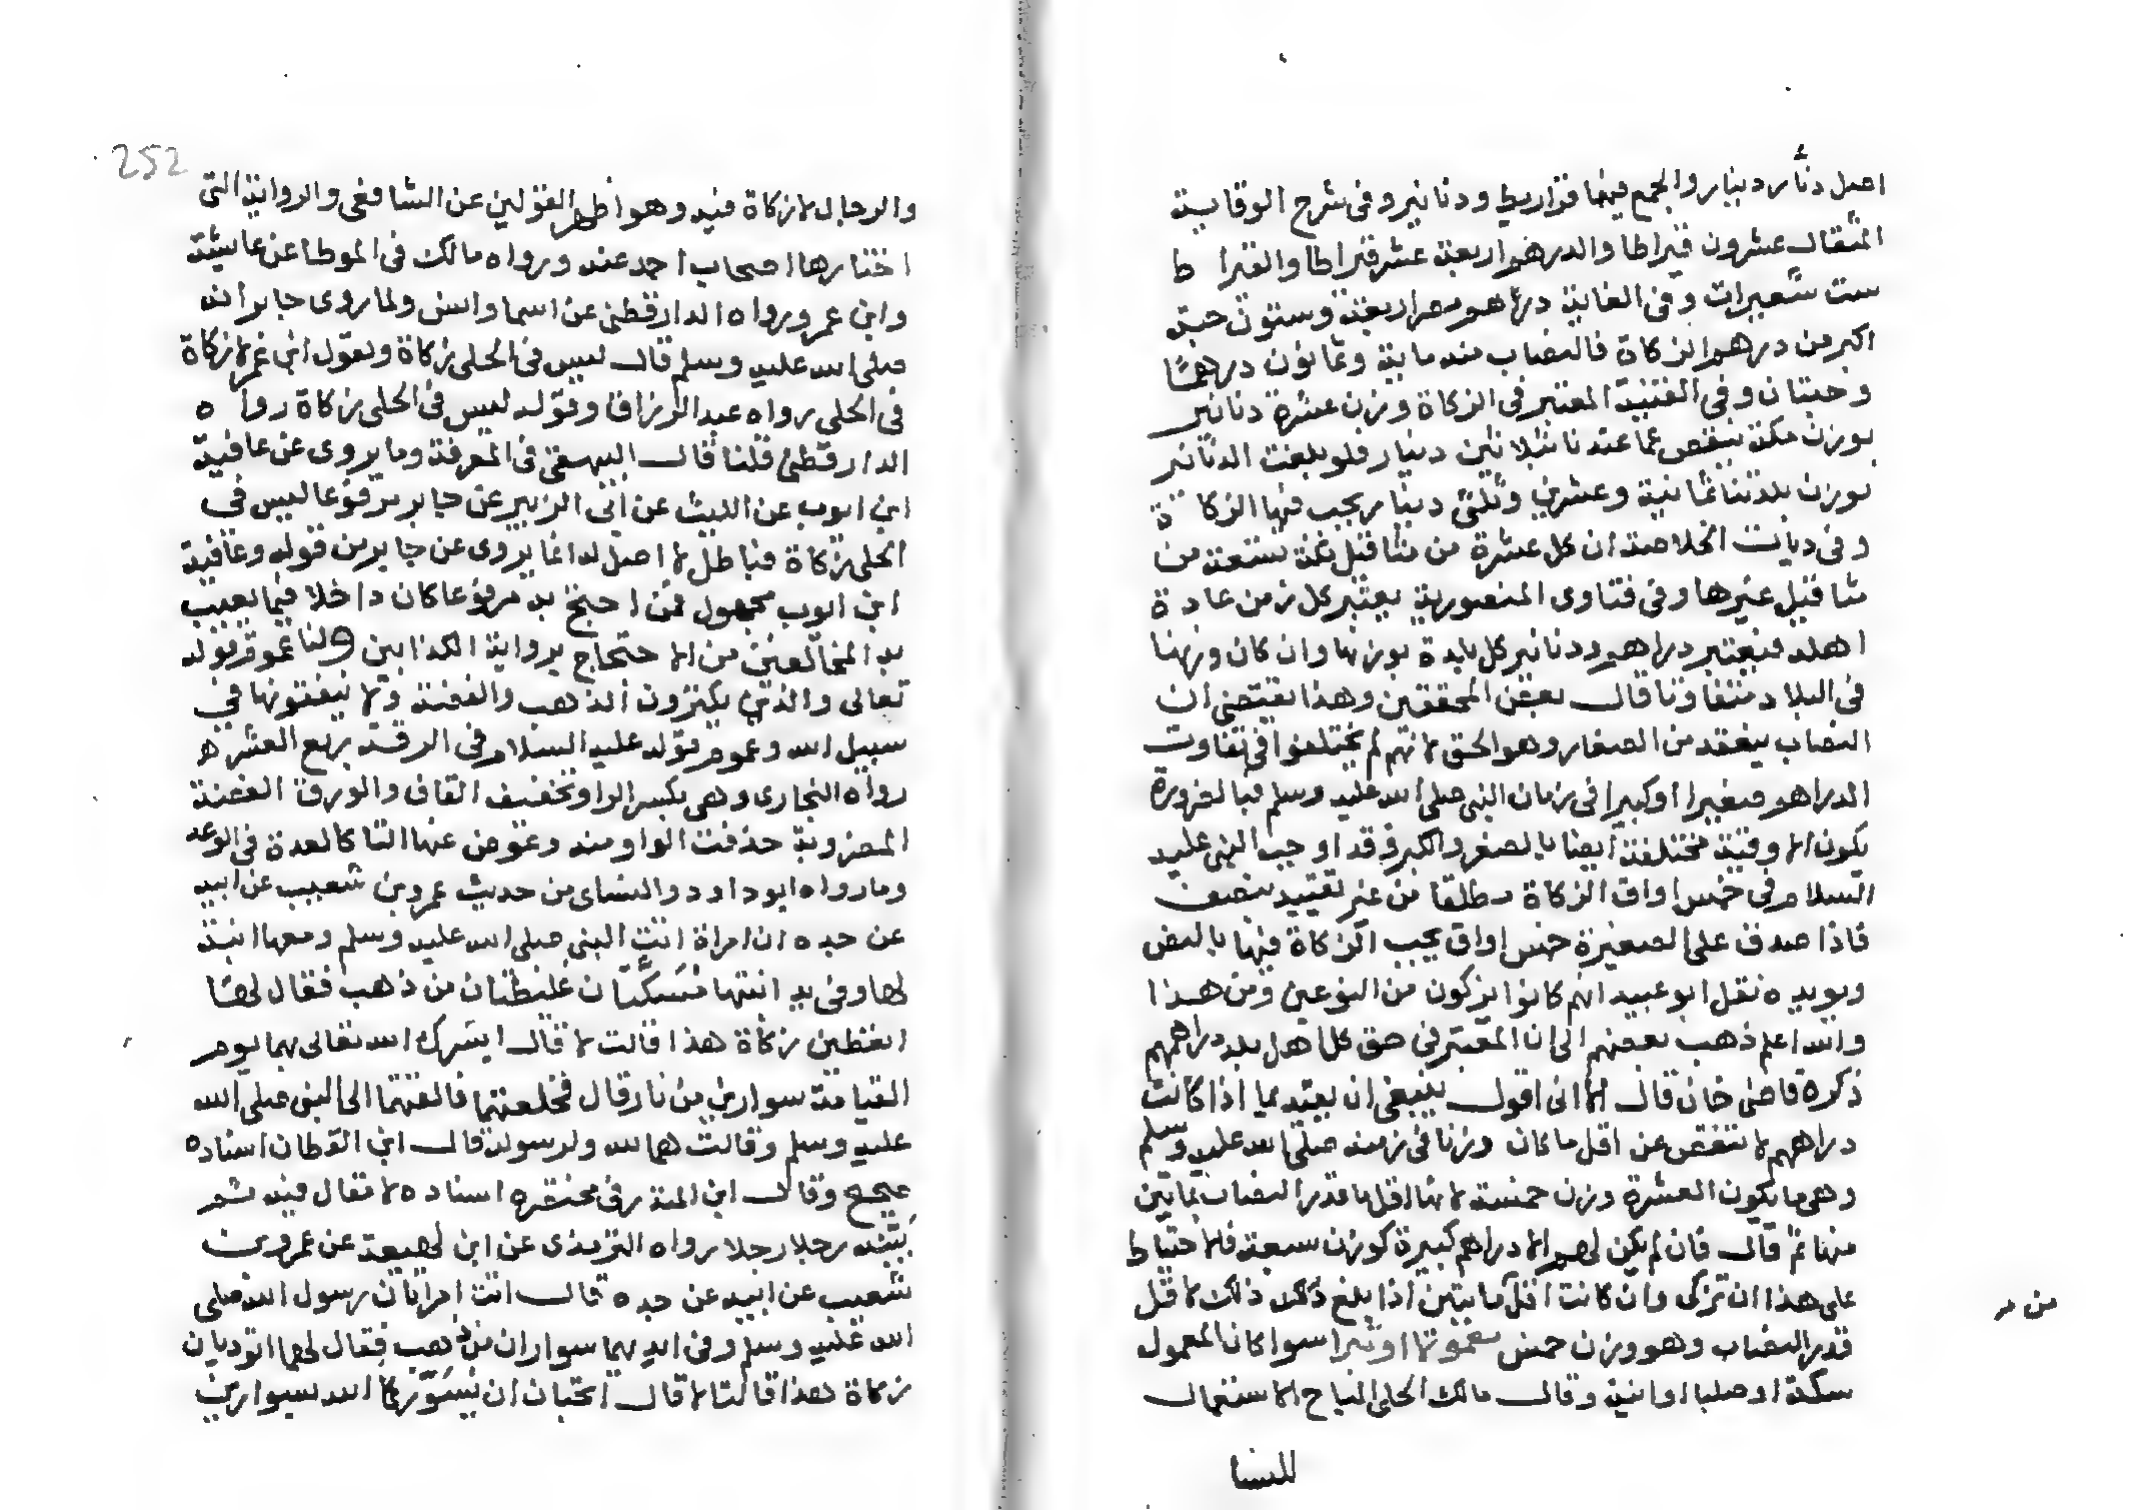 اصل دنانير دينار والجمع فيهما قراريط ودنانير وفي شرح الوقاية
المثقال عشرون قيراطا والدرهم اربعة عشر قيراطا والقيراط
ست شعيرات وفي الغاية دراهم مصر اربعة وستون حبة
اكبر من درهم الزكاة فالنصاب منه ماية وثمانون درهما
وحبتان وفي القنية المعتبر في الزكاة وزن عشرة دنانير
بوزن مكة ينقص عما عندنا بثلاثين دينار فلو بلغت الدنانير
بوزن بلدتنا ثمانية وعشرين وثلثي دينار يجب فيها الزكاة
وفي ديات الخلاصة ان كل عشرة من مثاقيل تسعة من
مثاقيل غيرها وفي فتاوى المنصورية يعتبر كل زمن عادة
اهله فيعتبر دراهم ودنانير كل بلدة بوزنها وان كان وزنها
في البلاد متفاوتا قال بعض المحققين وهذا يقتضي ان
النصاب ينعقد من الصغار وهو الحق لانهم لم يختلفوا في تفاوت
الدراهم صغيرا وكبيرا في زمان النبي صلى الله عليه وسلم فبالضرورة
يكون الاوقية مختلفة ايضا بالصغر والكبر وقد اوجب النبي عليه
السلام في خمس اواق الزكاة مطلقا من غير تقييد بنصف
فاذا صدق على الصغيرة خمس اواق يجب الزكاة فيها بالنص
ويويده نقل ابو عبيد انهم كانوا يزكون من النوعين ومن هذا
والله اعلم ذهب بعضهم الى ان المعتبر في حق كل اهل بلد دراهمهم
ذكره قاضي خان قال الا اني اقول ينبغي ان يعتد بما اذا كانت
دراهمهم لا تنقص عن اقل ما كان وزنا في زمنه صلى الله عليه وسلم
وهي ما يكون العشرة وزن خمسة لانها اقل ما قدر النصاب بمايتين
منها ثم قال فان لم يكن لهم الا دراهم كبيرة كوزن سبعة فالاحتياط
على هذا ان تزكى وان كانت اقل مايتين اذا بلغ ذلك ذلك لاقل
قدر النصاب وهو وزن خمس مضمونها او تبرا سوا كان المعمول
سكة او صليا اوانية وقال مالك الحلي المباح الاستعمال
من
للنسا
252
والرجال لا زكاة فيه وهو اظهر القولين عن الشافعي والرواية التي
اختارها اصحاب احمد عنه ورواه مالك في الموطا عن عايشة
وابن عمر ورواه الدارقطني عن اسما وانس ولما روى جابر انه
صلى الله عليه وسلم قال ليس في الحلي زكاة وبقول ابن عمر لا زكاة
في الحلي رواه عبد الرزاق وقوله ليس في الحلي زكاة رواه
الدارقطني قلنا قال البيهقي في المعرفة وما يروى عن عافية
ابن ايوب عن الليث عن ابي الزبير عن جابر مرفوعا ليس في
الحلي زكاة فباطل لا اصل له انما يروى عن جابر من قوله وعافية
ابن ايوب مجهول فمن احتج به مرفوعا كان داخلا فيما يعيب
به المخالفين من الاحتجاج برواية الكذابين ولنا عموم قوله
تعالى والذين يكنزون الذهب والفضة ولا ينفقونها في
سبيل الله وعموم قوله عليه السلام في الرقة ربع العشر
رواه البخاري وهي بكسر الرا وتخفيف القاف والورق الفضة
المضروبة حذفت الواو منه وعوض عنها التا كالعدة في الوعد
وما رواه ابو داود والنساى من حديث عمرو بن شعيب عن ابيه
عن جده ان امراة اتت النبي صلى الله عليه وسلم ومعها ابنة
لها وفي يد ابنتها مسكتان غليظتان من ذهب فقال لها
اتعطين زكاة هذا قالت لا قال ايسرك الله تعالى بهما يوم
القيامة سوارين من نار قال فخلعتهما فالقتهما الى النبي صلى الله
عليه وسلم وقالت هما لله ولرسوله قال ابن القطان اسناده
صحيح وقال ابن المنذر في مختصره اسناده لا مقال فيه ثم
بينه رجلا رجلا رواه الترمذي عن ابن لهيعة عن عمرو بن
شعيب عن ابيه عن جده قال اتت امراتان رسول الله صلى
الله عليه وسلم وفي ايديهما سواران من ذهب فقال لهما اتوديان
زكاة هذا قالتا لا قال اتحبان ان يسوركما الله بسوارين